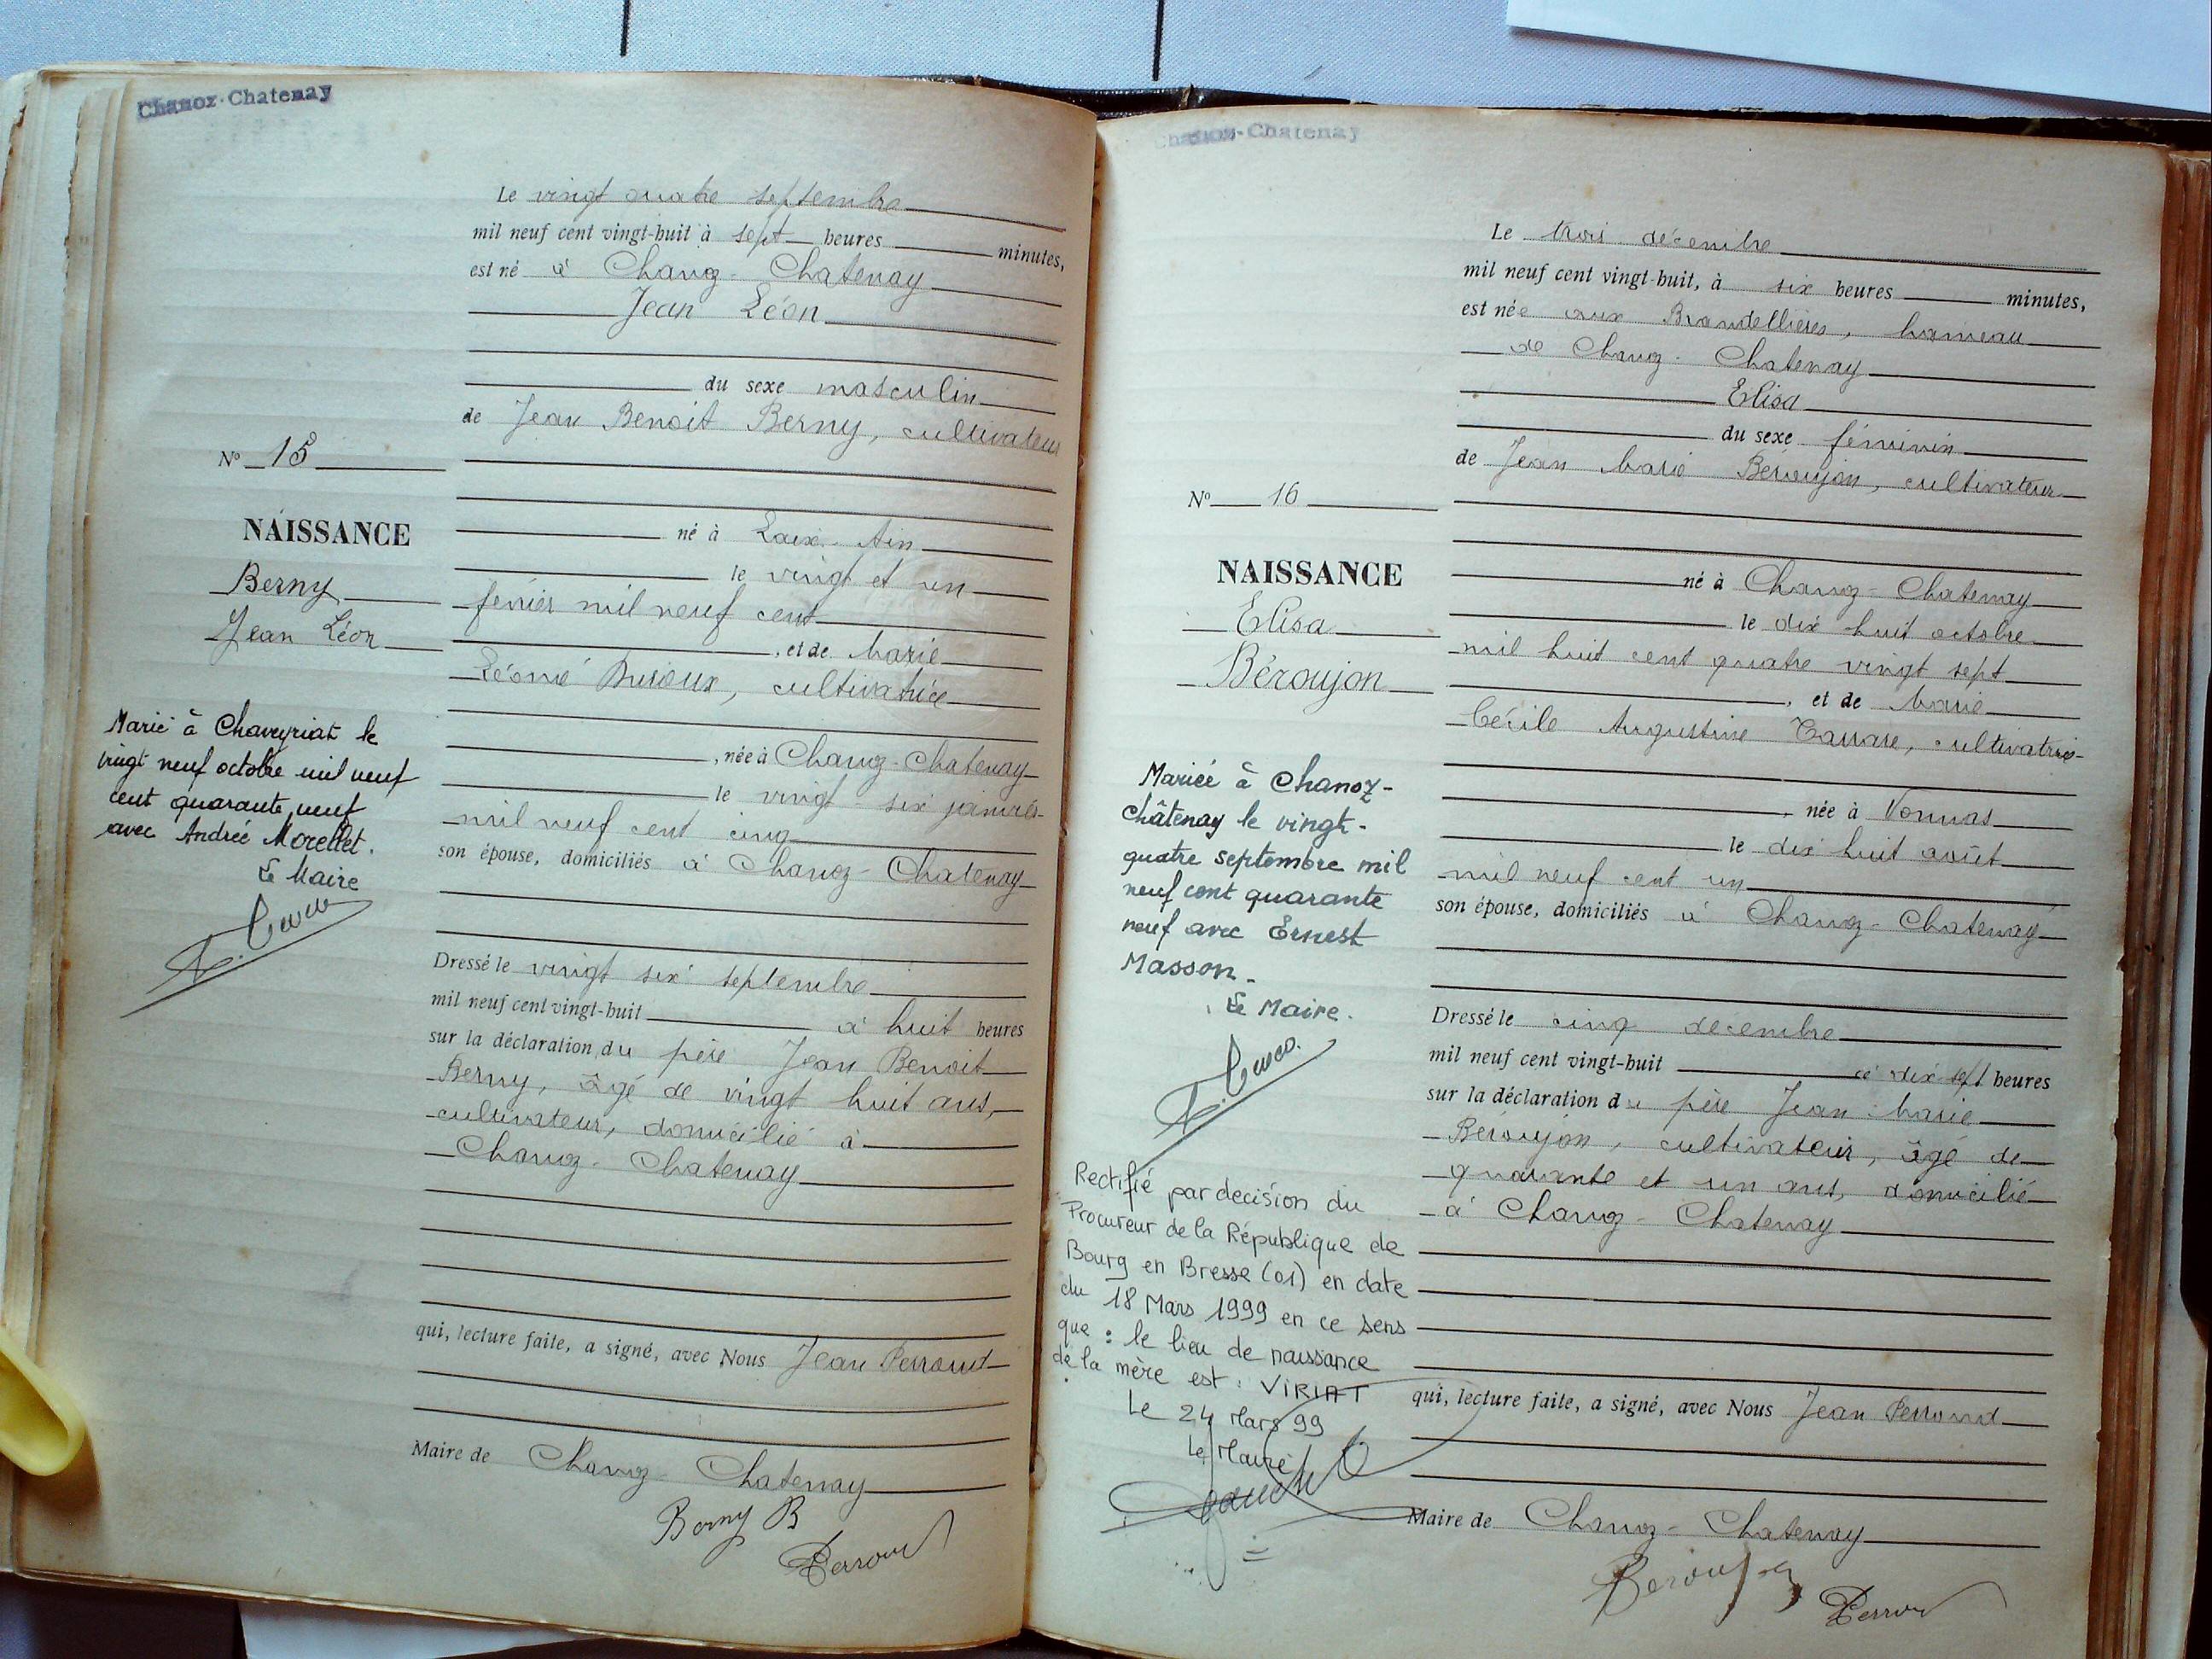 Chanoz-Chatenay
Le vingt quatre septembre
mil neuf cent vingt-huit à sept heures minutes,
est né à Chanoz-Chatenay
Jean Léon
du sexe masculin
de Jean Benoit Berny, cultivateur
né à Laix. Ain
le vingt et un
février mil neuf cent
, et de Marie
Léonie, cultivatrice
, née à Chanoz-Chatenay
le vingt-six janvier
mil neuf cent cinq
son épouse, domiciliés à Chanoz-Chatenay
Dressé le vingt six septembre
mil neuf cent vingt-huit à huit heures
sur la déclaration du père Jean Benoit
Berny, âgé de vingt huit ans,
cultivateur, domicilié à
Chanoz-Chatenay
qui, lecture faite, a signé, avec Nous Jean Perroud
Maire de Chanoz Chatenay
Berny B
Perroud
N° 15
NAISSANCE
Berny
Jean Léon
Marié à Chaveyriat le
vingt neuf octobre mil neuf
cent quarante neuf
avec Andrée Morellet.
Le Maire
Chanoz-Chatenay
Le trois décembre
mil neuf cent vingt-huit, à six heures minutes,
est née aux Brandellières, hameau
de Chanoz-Chatenay
Elisa
du sexe féminin
de Jean Marie Béroujon, cultivateur
né à Chanoz-Chatenay
le dix huit octobre
mil huit cent quatre vingt sept
, et de Marie
Cécile Augustine, cultivatrice
, née à Vonnas
le dix huit août
mil neuf cent un
son épouse, domiciliés à Chanoz-Chatenay
Dressé le cinq decembre
mil neuf cent vingt-huit à dix-sept heures
sur la déclaration du père Jean Marie
Béroujon, cultivateur, âgé de
quarante et un ans, domicilié
à Chanoz-Chatenay
qui, lecture faite, a signé, avec Nous Jean Perroud
Maire de Chanoz-Chatenay
Beroujon
Perroud
N° 16
NAISSANCE
Elisa
Béroujon
Mariée à Chanoz-
Châtenay le vingt-
quatre septembre mil
neuf cent quarante
neuf avec Ernest
Masson.
Le Maire.
Rectifié par decision du
Procureur de la République de
Bourg en Bresse (01) en date
du 18 Mars 1999 en ce sens
que : le lieu de naissance
de la mère est : VIRIAT
Le 24 Mars 99
Le Maire